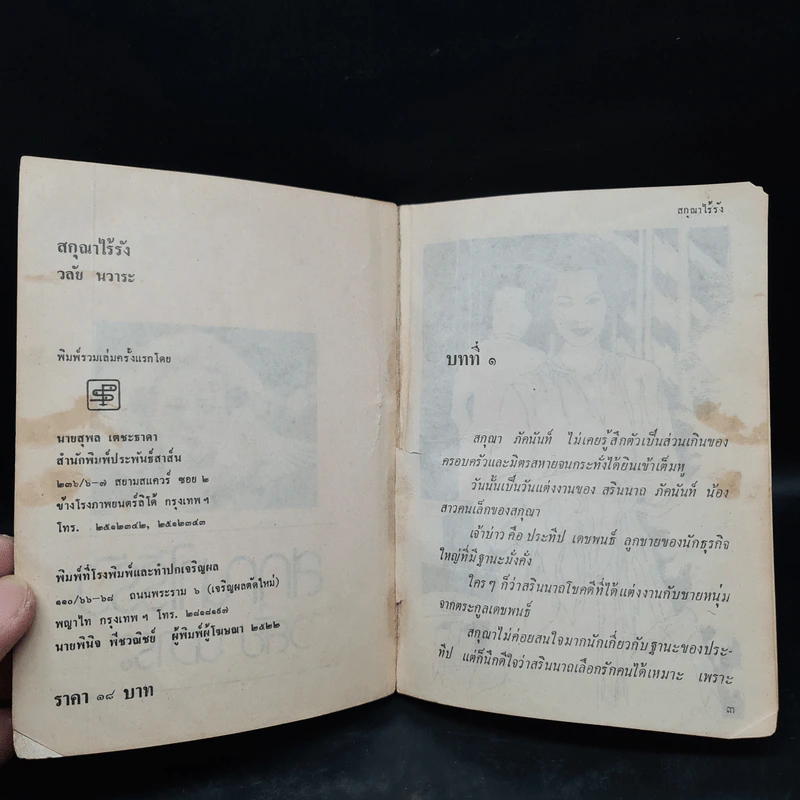 สกุณาไร้รัง
วลัย นวาระ
พิมพ์รวมเล่มครั้งแรกโดย
นายสุพล เตชะธาดา
สำนักพิมพ์ประพันธ์สาส์น
๒๓๖/๖-๗ สยามสแควร์ ซอย ๒
ข้างโรงภาพยนตร์ลิโด้ กรุงเทพฯ
โทร. ๒๕๑๒๓๔๒, ๒๕๑๒๓๔๓
พิมพ์ที่โรงพิมพ์และทำปกเจริญผล
๑๑๐/๖๖-๖๘ ถนนพระราม ๖ (เจริญผลตัดใหม่)
พญาไท กรุงเทพฯ โทร. ๒๘๑๘๑๙๗
นายพินิจ พืชวณิชย์ ผู้พิมพ์ผู้โฆษณา ๒๕๒๒
ราคา ๑๘ บาท
สกุณาไร้รัง
บทที่ ๑
สกุณา ภัคนันท์ ไม่เคยรู้สึกตัวเป็นส่วนเกินของ
ครอบครัวและมิตรสหายจนกระทั่งได้ยินเข้าเต็มหู
วันนั้นเป็นวันแต่งงานของ สรินนาถ ภัคนันท์ น้อง
สาวคนเล็กของสกุณา
เจ้าบ่าว คือ ประทีป เดชพนธ์ ลูกชายของนักธุรกิจ
ใหญ่ที่มีฐานะมั่งคั่ง
ใครๆ ก็ว่าสรินนาถโชคดีที่ได้แต่งงานกับชายหนุ่ม
จากตระกูลเดชพนธ์
สกุณาไม่ค่อยสนใจมากนักเกี่ยวกับฐานะของประ-
ทีป แต่ก็นึกดีใจว่าสรินนาถเลือกรักคนได้เหมาะ เพราะ
๓